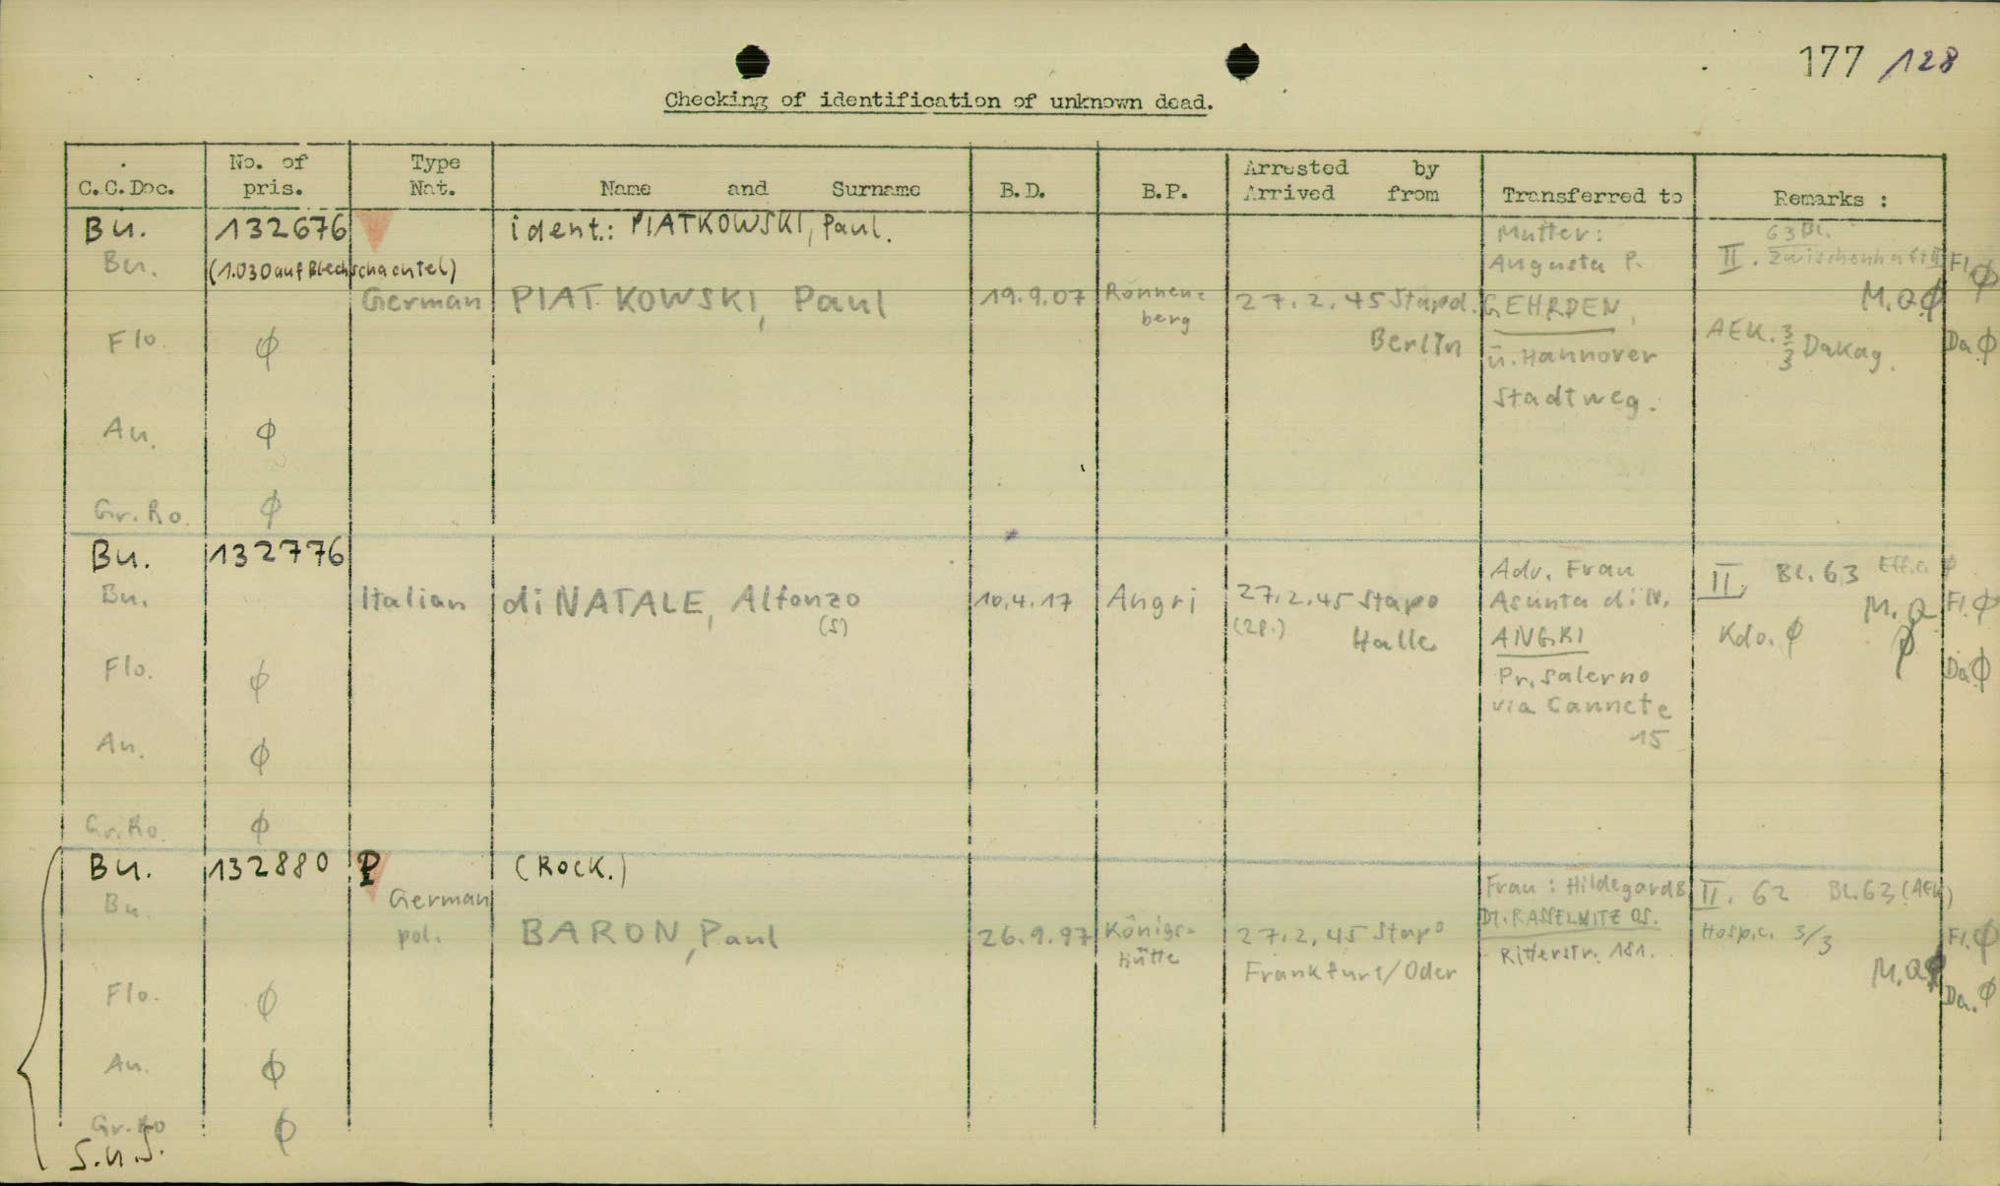 177 /128
Checking of identification of unknown dead.
C.C.Doc. No. of pris. Type Nat. Name and Surname B.D. B.P. Arrested by Arrived from Transferred to Remarks :
Bu. 132676 ident.: PIATKOWSKI, Paul. Mutter: 63 Bl.
Bu. (1.030 auf Blechschachtel) Augusta P. II. Zwischenhaft II Fl. ϕ
German PIATKOWSKI, Paul 19.9.07 Ronnen= 27.2.45 Stapol. GEHRDEN, M.Q. ϕ
berg
Flo. ϕ Berlin ü. Hannover AEK. 3/3 Dakag. Da. ϕ
Stadtweg.
Au. ϕ
Gr.Ro. ϕ
Bu. 132776 Adv. Frau II. Bl. 63
Bu. Italian di NATALE, Alfonzo 10.4.17 Angri 27.2.45 Stapo Asunta di N. M.Q. ϕ Fl. ϕ
(S) (2P.) Halle ANGRI Kdo. ϕ
Flo. ϕ Pr. Salerno Da. ϕ
via Cannete
An. ϕ 15
Gr.Ro. ϕ
Bu. 132880 P (Rock.)
Bu. German Frau: Hildegard B II. 62 Bl. 63 (AEK)
pol. BARON, Paul 26.9.97 Königs= 27.2.45 Stapo Dt. RASSELWITZ OS. Hosp.c. 3/3 Fl. ϕ
hütte Frankfurt/Oder Ritterstr. 181. M.Q. ϕ
Flo. ϕ Da. ϕ
An. ϕ
Gr.Ro ϕ
S.u.S.